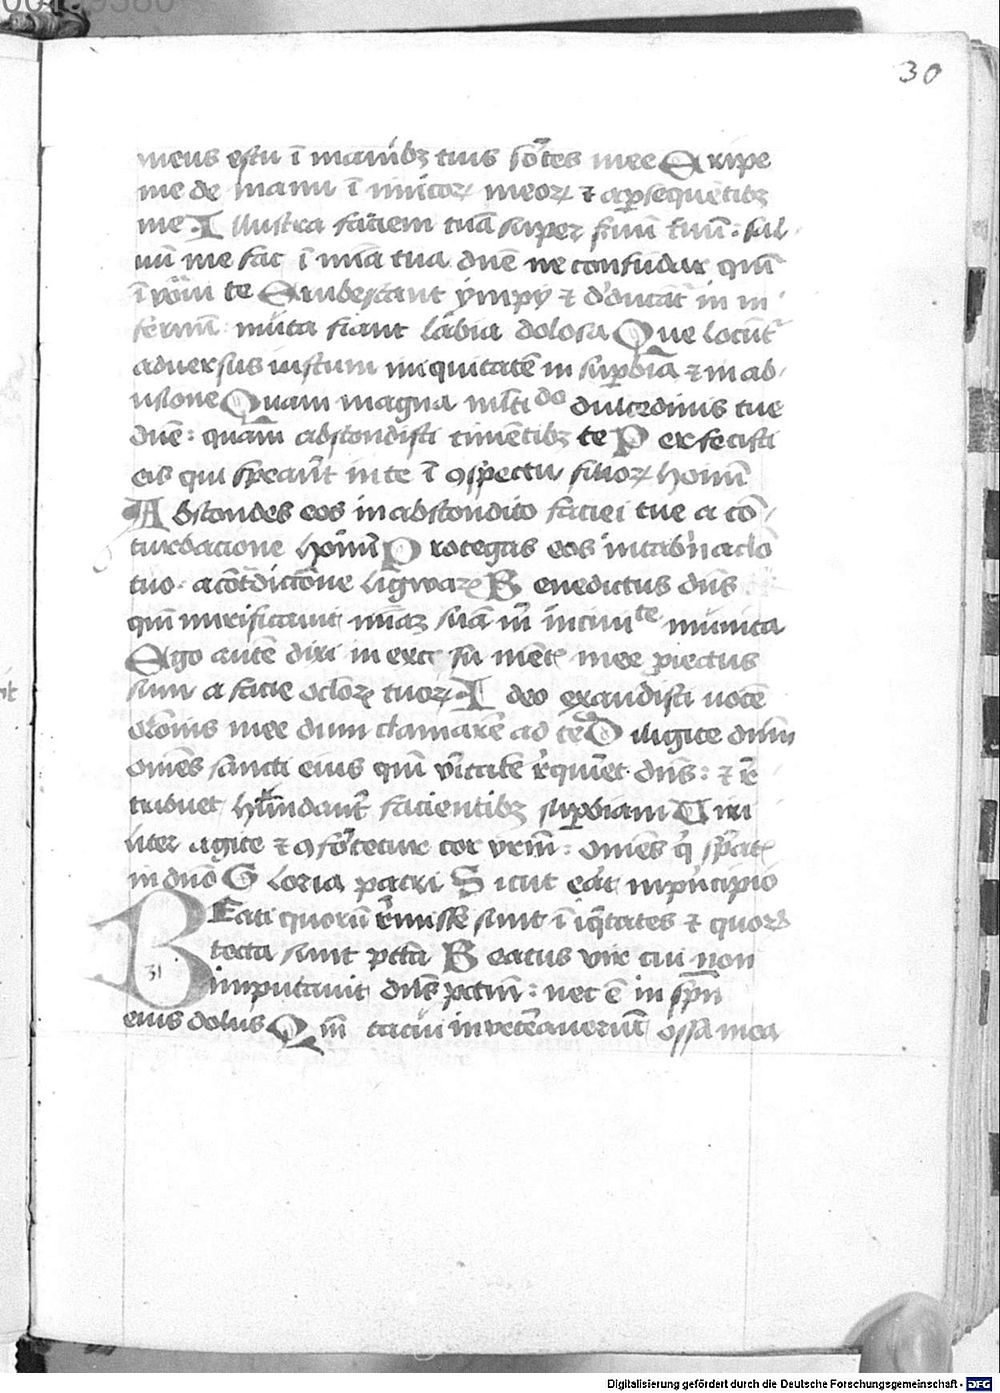 30
meus es tu ī manibꝫ tuis sōrtes mee Eripe
me de manu ī imicoꝝ meoꝝ ⁊ a ꝑsequētibꝫ
me Illustra faciem tuā super ẜuū tuū: sal
uū me fac ī mīa tua dn̄e ne confundar qm̄
īuocaui te Erubescant ympij ⁊ dducāt in in
fernū: muta fiant labia dolosa Que locūt
aduersus iustum iniquitatē in suꝑbia ⁊ in ab
usione Quam magna mlti do dulcedinis tue
dn̄e: quam abscondisti timētibꝫ te Perfecisti
eis qui sperant in te ī ꝯspectu filioꝝ hominū
Abscondes eos in abscondito faciei tue a cō
turbacione hominū Proteges eos in tabnaclo
tuo a cōtradictiōne ligwaꝝ Benedictus dn̄s
qm̄ mirificauit mīaꝫ suā m̄ in ciuite munita
Ego autē dixi in excessu mētꝭ mee ꝓiectus
sum a facie ocloꝝ tuoꝝ Ideo exaudisti uocē
orōnis mee dum clamarē ad te Diligite dnm̄
om̄es sancti eius qm̄ vītatē rquiret dn̄s: ⁊ re
tribuet habundant facientibꝫ suꝑbiam Uiri
liter agite ⁊ ꝯfortetur cor vrm̄: om̄es q̄ sperat
in dn̄o Gloria patri Sicut erat in pncipio
Beati quorū remisse sunt ī iqtates ⁊ quoꝝ
tecta sunt pctā Beatus vir cui non
31
imputauit dn̄s pctm̄: nec ē in spū
eius dolus Qm̄ tacui inuetauerūt ossa mea
Digitalisierung gefördert durch die Deutsche Forschungsgemeinschaft - DFG